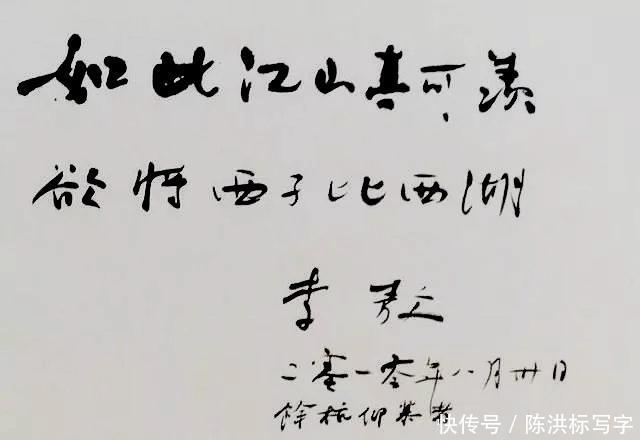 如此江山真可羡
欲将西子比西湖
李敖
二零一零年八月卅日
馀杭仰慕
快传号 / 陈洪标写字